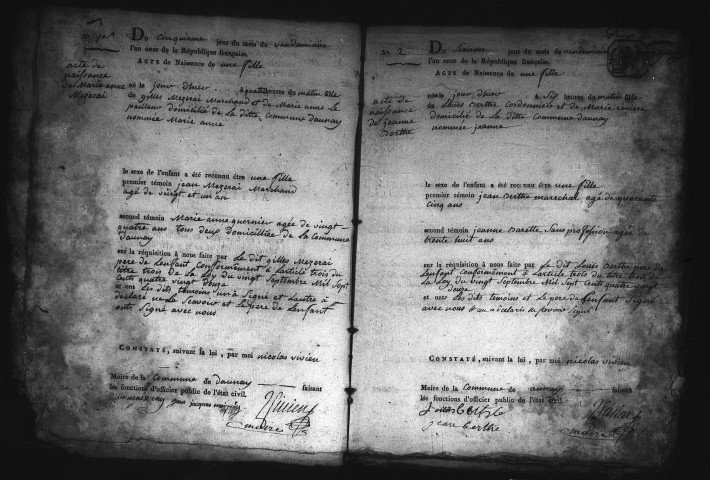 Du cinquieme jour du mois de vendemiaire
l'an onze de la République française.
ACTE de Naissance de une fille
acte de
naissance
de Marie anne
Mezerai
né le jour d'hier à quatre heures du matin fille
de gilles Mezerai Marchand et de Marie anne Le
pailleur domicilié de La ditte commune daunay
nommée Marie anne
le sexe de l'enfant a été reconnu être une fille
premier témoin jean Mezerai Marchand
agé de vingt et un an
second témoin Marie anne quernier agée de vingt
quatre ans tous deux Domicilliée de La commune
Daunay
sur la réquisition à nous faite par Le dit gilles Mezerai
pere de Lenfant conformement a Larticle trois du
titre trois de La Loy du vingt Septembre Mil Sept
Cents quatre vingt Douze
et ont Les dits temoins un à Signé et Lautre à
declaré ne Le Scavoir et Le pere de Lenfant
onts Signé avec nous
CONSTATÉ, suivant la loi, par moi nicolas vivien
Maire de la Commune de daunay faisant
les fonctions d'officier public de l'état civil.
Vivien
maire
n.° 2
Du jour du mois de vendemiaire
l'an onze de la République française.
ACTE de Naissance de une fille
acte de
naissance
de jeanne
berthe
né le jour d'hier à Six heures du matin fille
de Louis berthe Cordonnier et de Marie
domicilié de La ditte Commune daunay
nommée jeanne
le sexe de l'enfant a été reconnu être une fille
premier témoin jean berthe marechal agé de quarante
cinq ans
second témoin jeanne Sans profession agée de
trente huit ans
sur la réquisition à nous faite par Le dit Louis berthe pere de
Lenfant conformément à Larticle trois du titre trois de
La Loy du vingt Septembre Mil Sept Cents quatre vingt
Douze
et onts Les dits temoins et Le pere de Lenfant Signé
avec nous
CONSTATÉ, suivant la loi, par moi nicolas vivien
Maire de la Commune de aunay faisant
les fonctions d'officier public de l'état civil.
Louis berthe
jean berthe
Vivien
maire